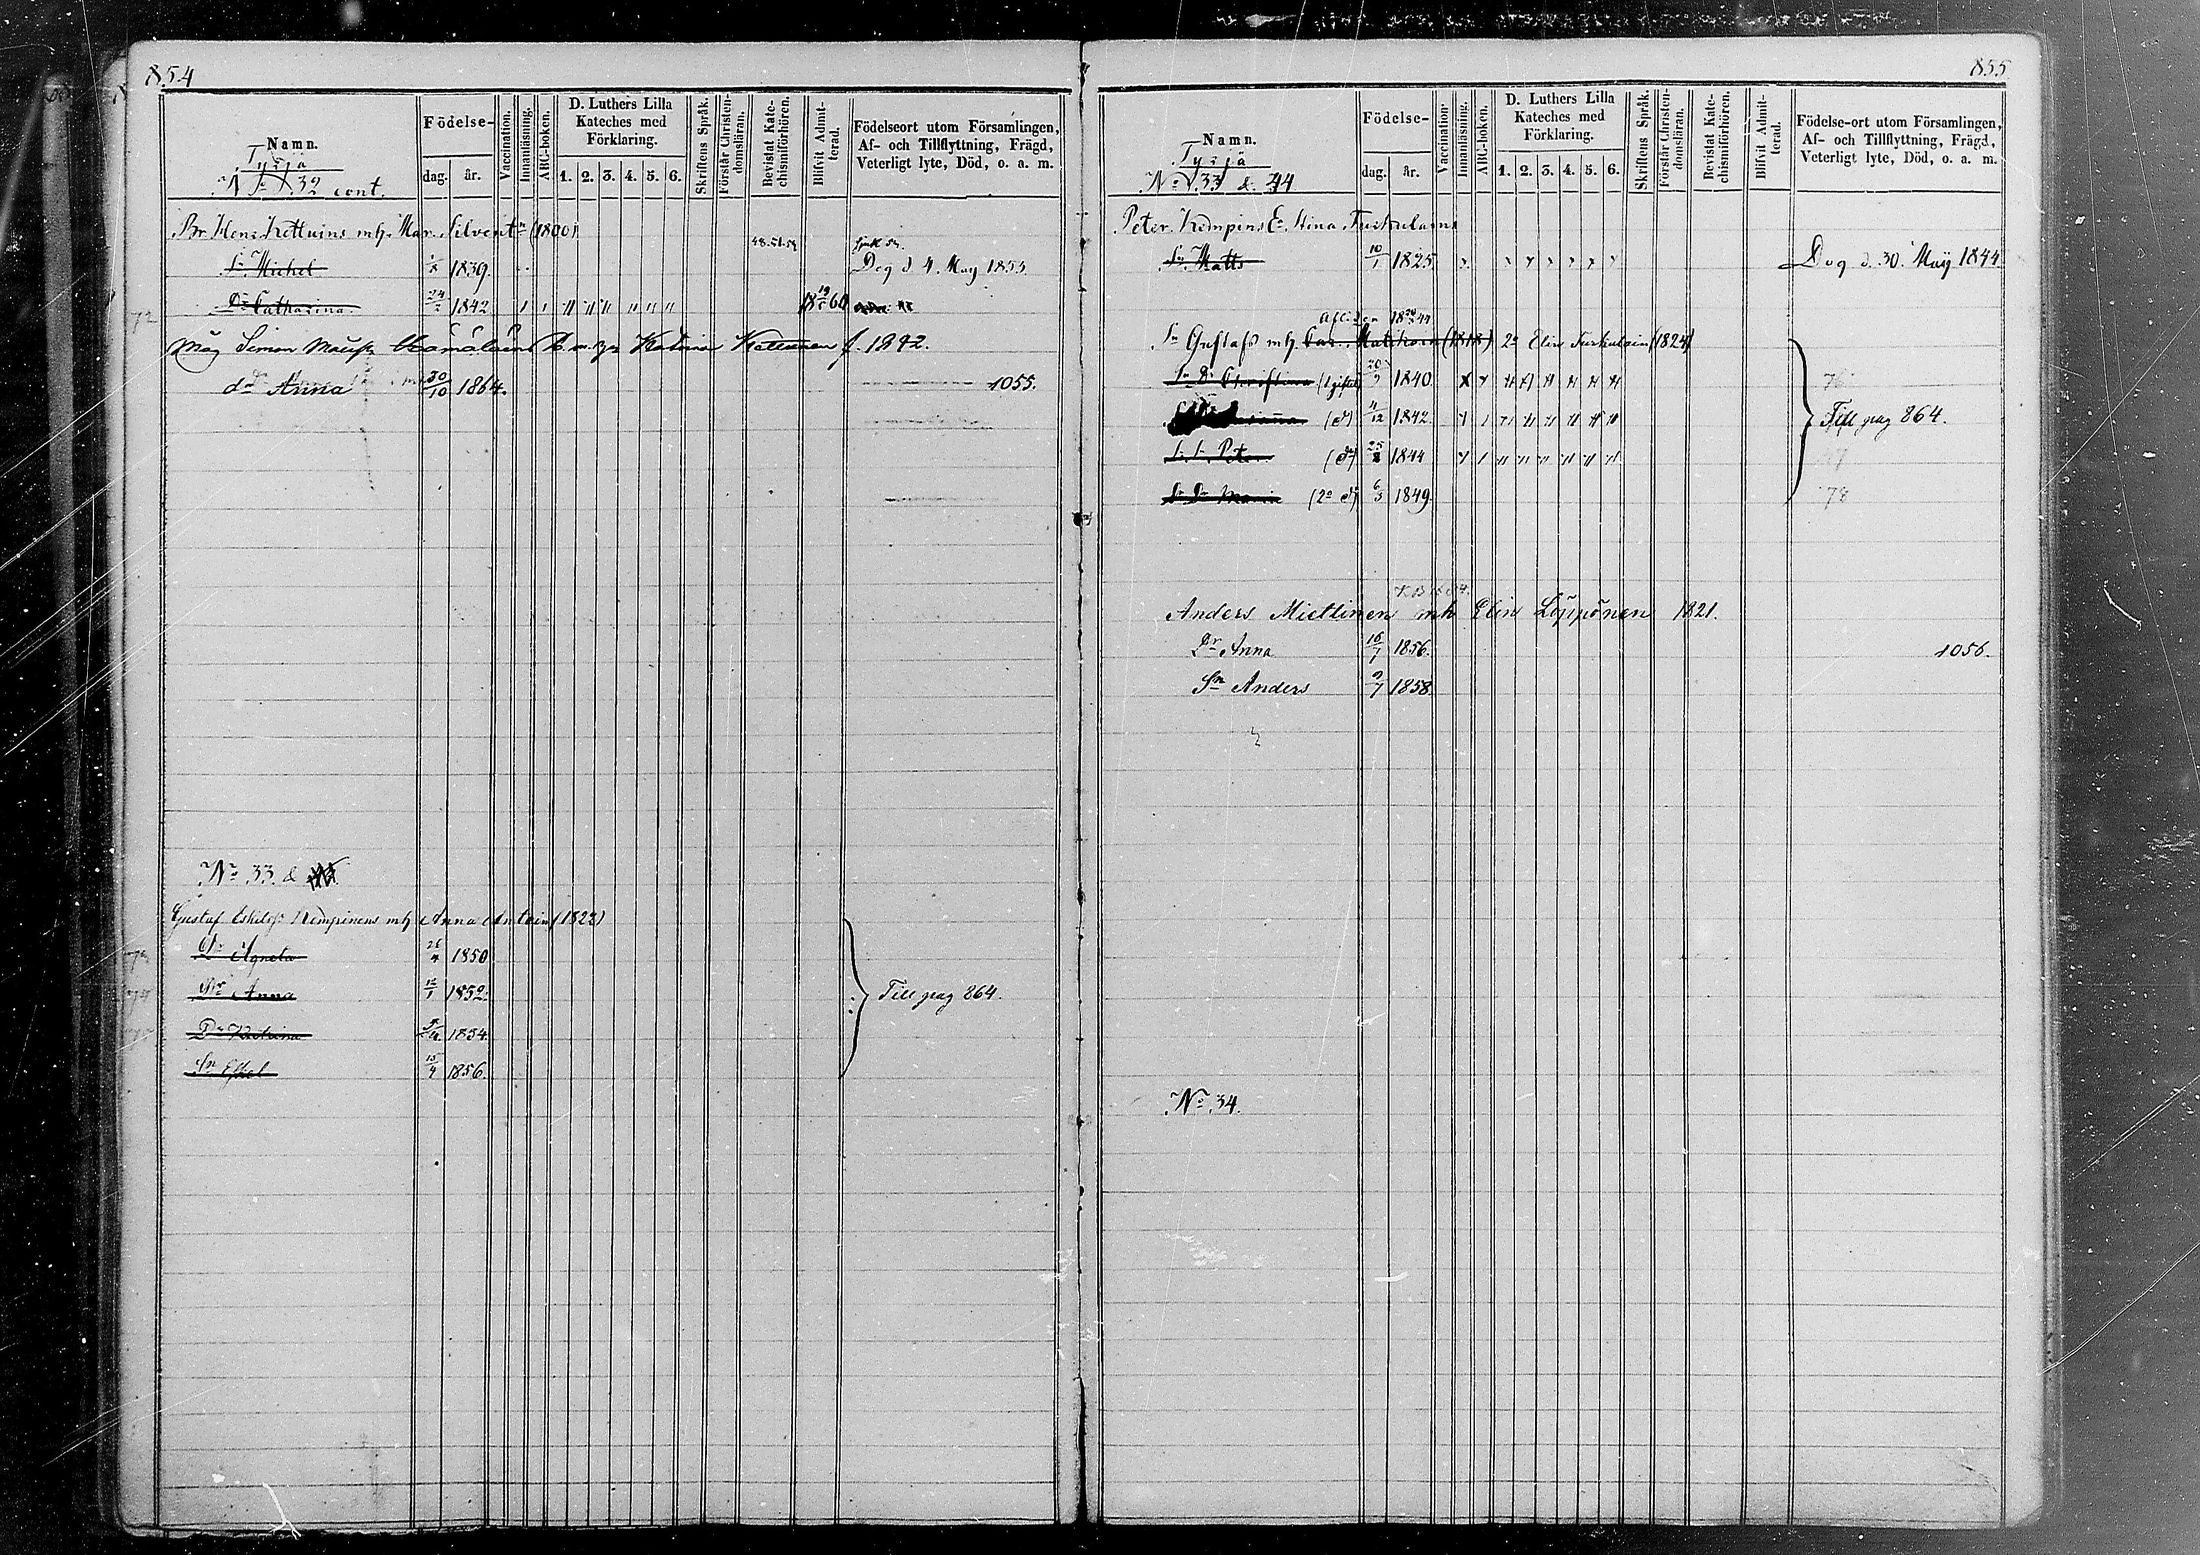 854
Namn.
Tyrjä
No 32 cont.
Födelse-
dag. år.
Vaccination.
Innanläsning.
ABC-boken.
D. Luthers Lilla Kateches med Förklaring.
1. 2. 3. 4. 5. 6.
Skriftens Språk.
Förstår Christendomsläran.
Bevistat Katechismiförhören.
Blifvit Admitterad.
Födelseort utom Församlingen, Af- och Tillflyttning, Frägd, Veterligt lyte, Död, o. a. m.
Br. Hen: Kettuins mh. Mar. Silvent (1800)
48.51.54
Sn Michel 1839 Dog d 4. May 1855.
Dr Catharina 24 1842 18 19 60
72
Måg Simon Hämäläin Katrina Kettunen f. 1842.
dr Anna 30/10 1864. 1055.
No 33 &
Gustaf Eskelss: Kempinens mh Anna Antein (1823)
Dr Agneta 26/4 1850
Dr Anna 12/1 1852
Dr Katrina 1854
Sn Eskel 15/4 1856
Till pag 864.
855
Namn.
Tyrjä
No 33 & 44
Födelse-
dag. år.
Vaccination.
Innanläsning.
ABC-boken.
D. Luthers Lilla Kateches med Förklaring.
1. 2. 3. 4. 5. 6.
Skriftens Språk.
Förstår Christendomsläran.
Bevistat Katechismiförhören.
Blifvit Admitterad.
Födelse-ort utom Församlingen, Af- och Tillflyttning, Frägd, Veterligt lyte, Död, o. a. m.
Peter Kempins E. Stina Turkulains
Sn Matts 10/1 1825 Dog d. 30. May 1844
Afliden 18 44
Sn Gustafs mh. (1818) 2o Elin Turkulain (1824)
Sn Dr Christina (1 gifte) 20/3 1840 76
(do) 4/12 1842 Till pag 864.
Sn Sn Peter (do) 25 1844 77
Sn Dr Maria (2o do) 6/3 1849 78
Anders Miettinen mh Elin Löppönen 1821.
Dr Anna 16/1 1856. 1056.
Sn Anders 9/7 1858
No 34.